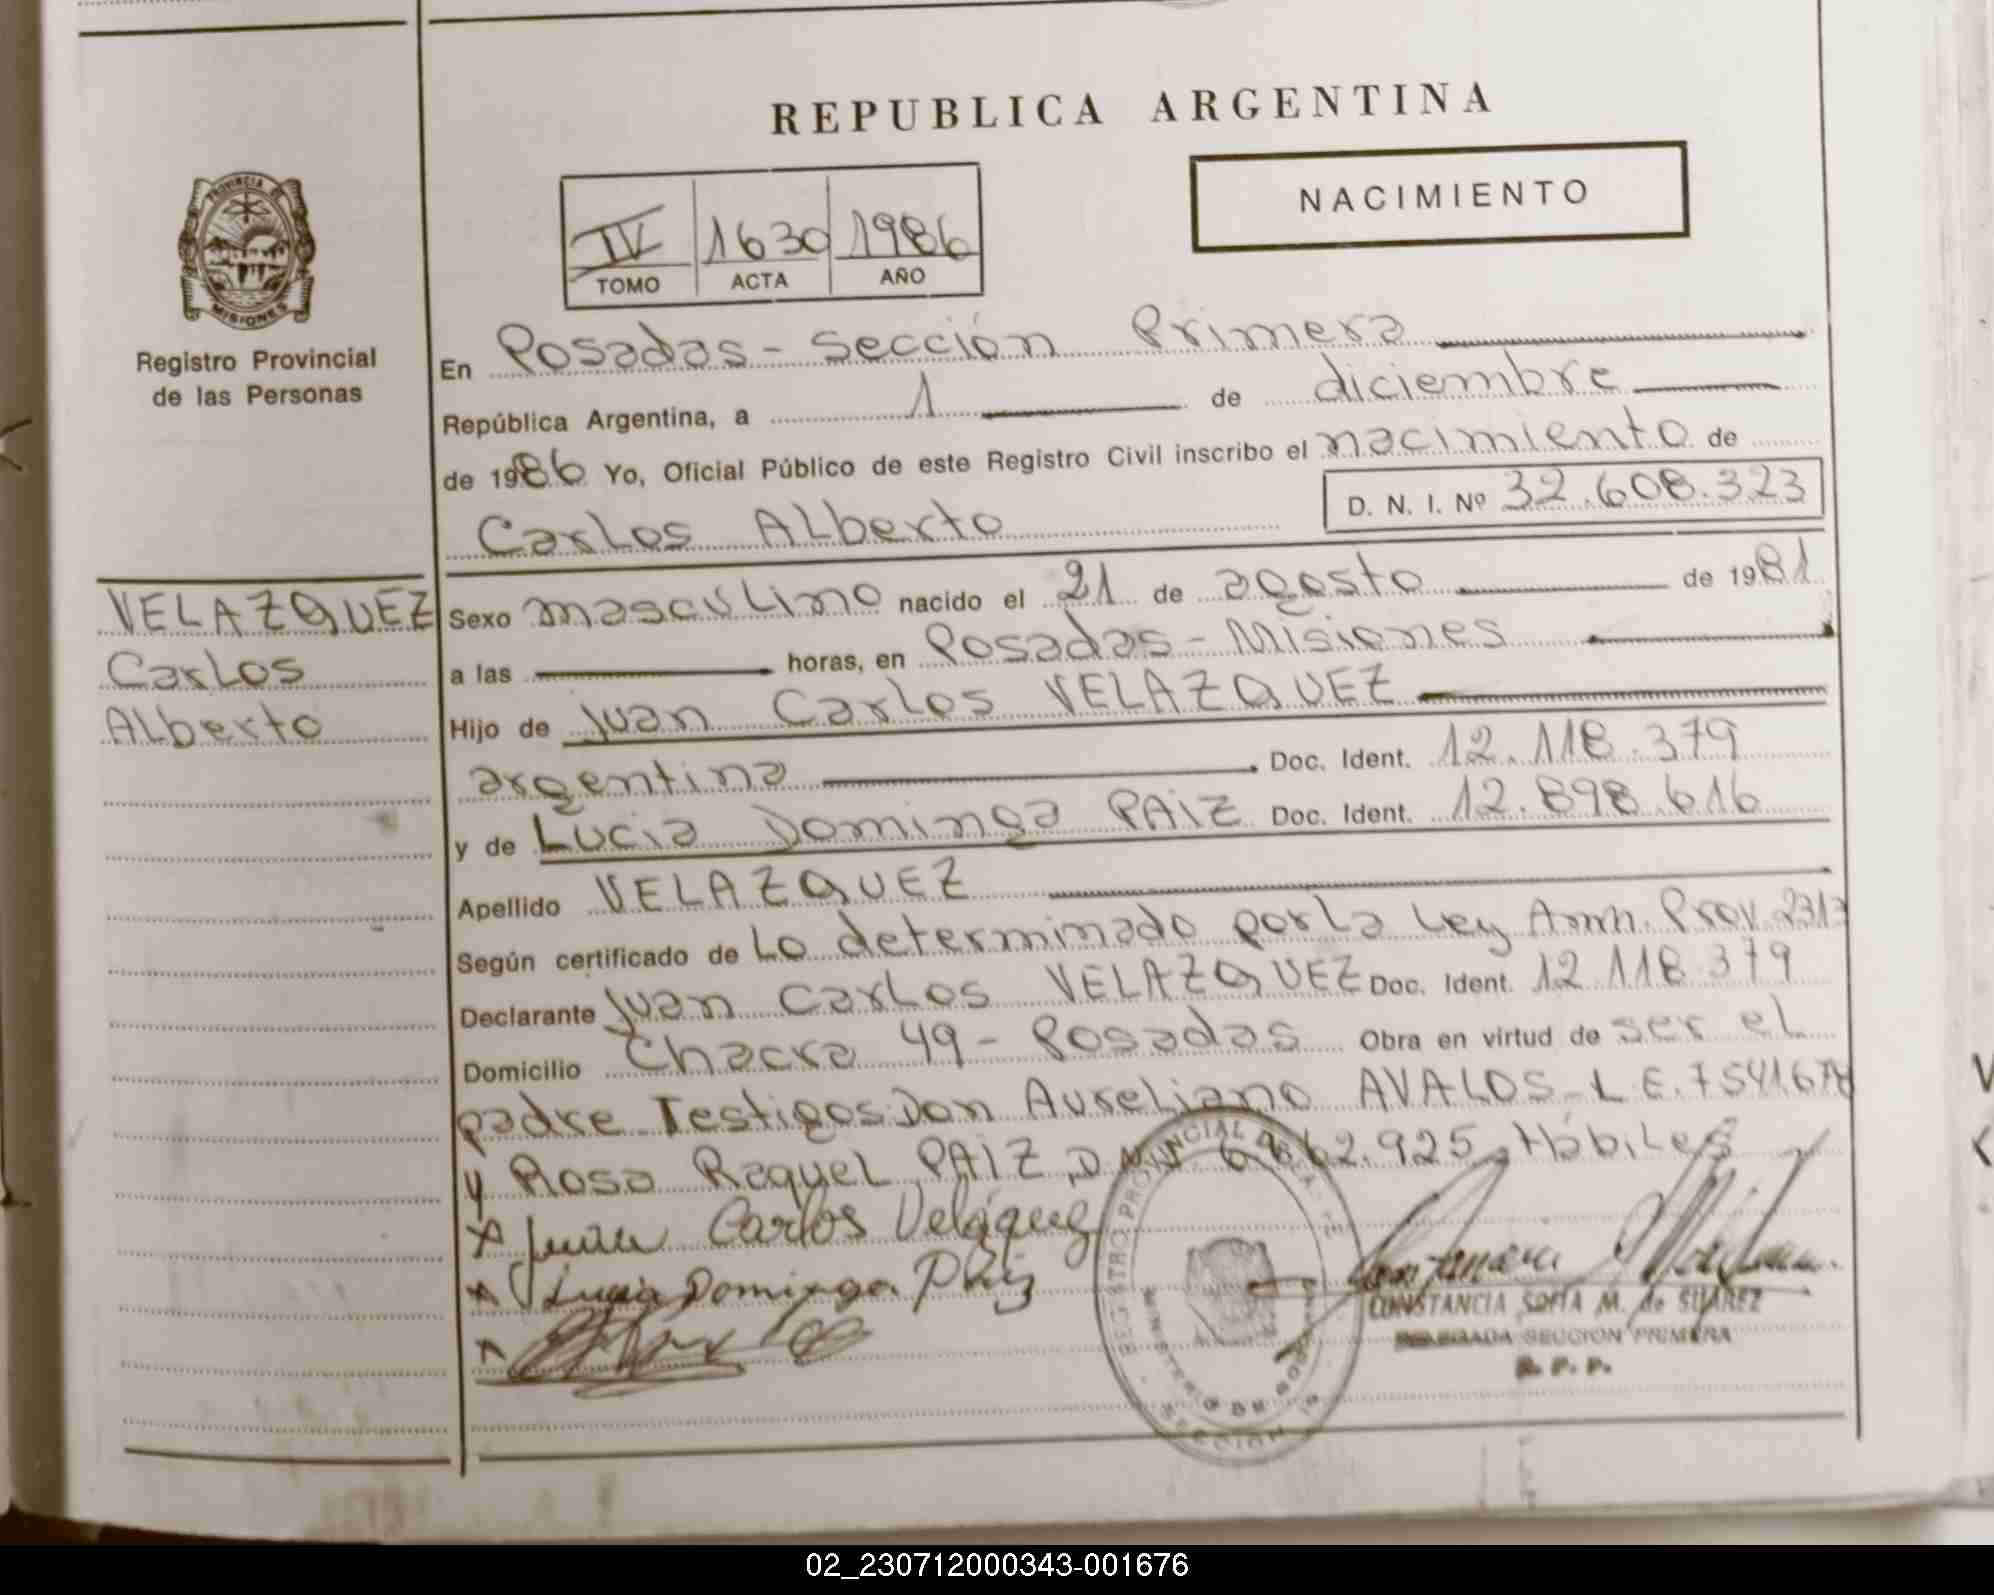 REPUBLICA ARGENTINA
NACIMIENTO
IV 1630 1986
TOMO ACTA AÑO
PROVINCIA DE
MISIONES
Registro Provincial
de las Personas
En Posadas - Sección Primera
República Argentina, a 1 de diciembre
de 1986 Yo, Oficial Público de este Registro Civil inscribo el nacimiento de
Carlos Alberto D. N. I. Nº 32.608.323
VELAZQUEZ
Carlos
Alberto
Sexo masculino nacido el 21 de agosto de 1981
a las horas, en Posadas - Misiones
Hijo de Juan Carlos VELAZQUEZ
argentina Doc. Ident. 12.118.379
y de Lucia Dominga PAIZ Doc. Ident. 12.898.616
Apellido VELAZQUEZ
Según certificado de Lo determinado por la Ley Amn. Prov. 2313
Declarante Juan Carlos VELAZQUEZ Doc. Ident. 12.118.379
Domicilio Chacra 49 - Posadas Obra en virtud de ser el
padre Testigos: Don Aureliano AVALOS - L.E. 7541678
y Rosa Raquel PAIZ D.N.I. 6.862.925 Hábiles
Juan Carlos Velázquez
Lucia Dominga Paiz
CONSTANCIA SOFIA M. de SUAREZ
DELEGADA SECCION PRIMERA
R. P. P.
REGISTRO PROVINCIAL
MINISTERIO DE GOBIERNO
SECCION 1a
02_230712000343-001676